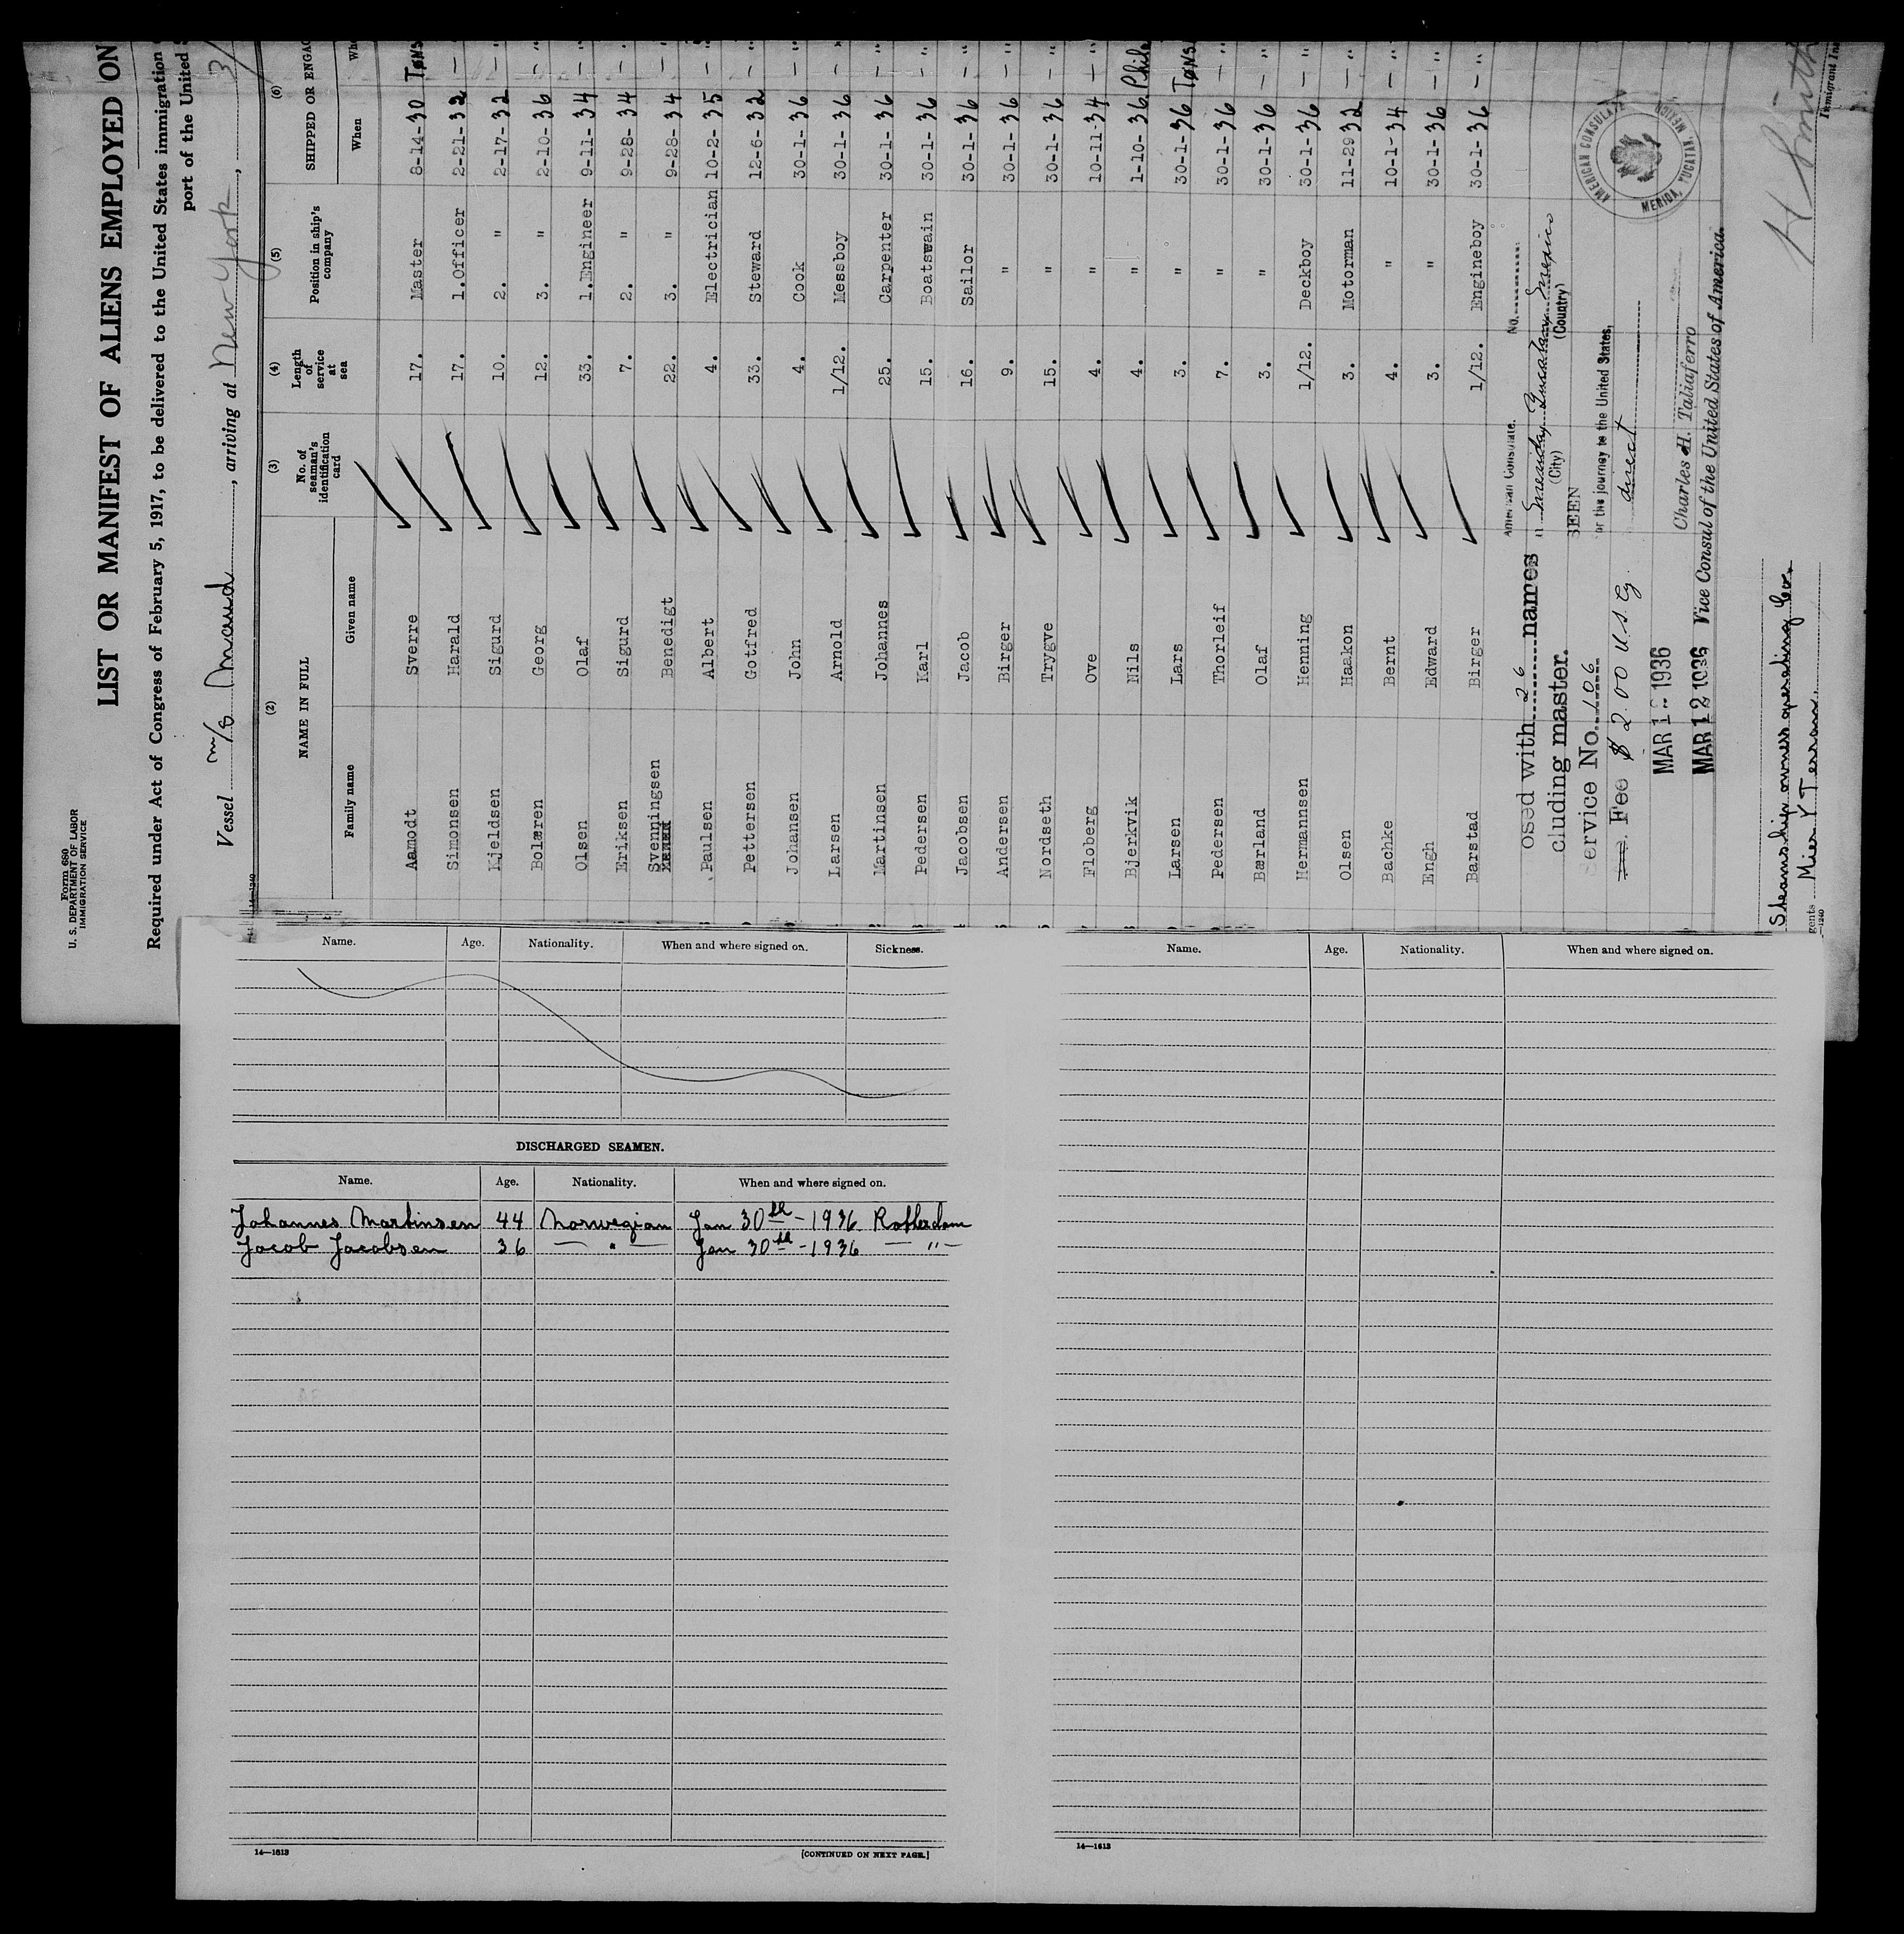 Form 680
U. S. DEPARTMENT OF LABOR
IMMIGRATION SERVICE
LIST OR MANIFEST OF ALIENS EMPLOYED ON
Required under Act of Congress of February 5, 1917, to be delivered to the United States immigration
port of the United
Vessel m/s Amaud, arriving at New York, 3/
(2) (3) (4) (5) (6)
NAME IN FULL No. of seaman's identification card Length of service at sea Position in ship's company SHIPPED OR ENGAG
Family name Given name When Whe
Aamodt Sverre 17. Master 8-14-30 Tøns
Simonsen Harald 17. 1.Officer 2-21-32 — "
Kjeldsen Sigurd 10. 2. " 2-17-32 — "
Bolæren Georg 12. 3. " 2-10-36 — "
Olsen Olaf 33. 1.Engineer 9-11-34 — "
Eriksen Sigurd 7. 2. " 9-28-34 — "
Svenningsen Benedigt 22. 3. " 9-28-34 — "
Paulsen Albert 4. Electrician 10-2-35 — "
Pettersen Gotfred 33. Steward 12-6-32 — "
Johansen John 4. Cook 30-1-36 — "
Larsen Arnold 1/12. Messboy 30-1-36 — "
Martinsen Johannes 25. Carpenter 30-1-36 — "
Pedersen Karl 15. Boatswain 30-1-36 — "
Jacobsen Jacob 16. Sailor 30-1-36 — "
Andersen Birger 9. " 30-1-36 — "
Nordseth Trygve 15. " 30-1-36 — "
Floberg Ove 4. " 10-11-34 — "
Bjerkvik Nils 4. " 1-10-36 Phila
Larsen Lars 3. " 30-1-36 Tøns
Pedersen Thorleif 7. " 30-1-36 — "
Bærland Olaf 3. " 30-1-36 — "
Hermannsen Henning 1/12. Deckboy 30-1-36 — "
Olsen Haakon 3. Motorman 11-29-32 — "
Bachke Bernt 4. " 10-1-34 — "
Engh Edward 3. " 30-1-36 — "
Barstad Birger 1/12. Engineboy 30-1-36 — "
American Consulate. No.
osed with 26 names
Merida, Yucatan, Mexico
(City) (Country)
cluding master.
SEEN
ervice No. 106
or the journey to the United States,
Fee $ 2.00 U.S.G.
direct
MAR 12 1936
Charles H. Taliaferro
MAR 12 1936 Vice Consul of the United States of America.
AMERICAN CONSULATE
MERIDA, YUCATAN, MEXICO
Steamship owners operating Co.
gents Mier Y Teran
14—1240
H Smith
Immigrant Ins
Name. Age. Nationality. When and where signed on. Sickness.
DISCHARGED SEAMEN.
Name. Age. Nationality. When and where signed on.
Johannes Martinsen 44 Norwegian Jan 30th - 1936 Rotterdam
Jacob Jacobsen 36 — " — Jan 30th - 1936 — " —
14—1613 [CONTINUED ON NEXT PAGE.]
Name. Age. Nationality. When and where signed on.
14—1613